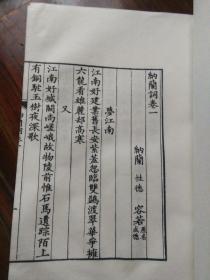 納蘭詞卷一
納蘭 性德 容若 原名成德
夢江南
江南好建業舊長安紫蓋忽臨雙鷁渡翠華爭擁
六龍看雄麗却高寒
又
江南好城闕尚嵯峨故物陵前惟石馬遺蹤陌上
有銅駝玉樹夜深歌